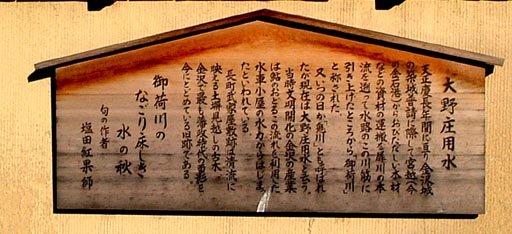 大野庄用水
天正慶長年間に亘り金沢城
の築城普請に際して宮越(今
の金石港)からおびただしい木材
などの資材の運搬を犀川の本
流を遡って水野のこの川筋に
引き上げたところから「御荷川」
と称された。
又いつの日か「鬼川」とも呼ばれ
たが現在は大野庄用水と云う。
当時文明開化の金沢の産業
は鮎のおどるこの流れを利用した
水車小屋の水力からはじまっ
たといわれている。
長町武家屋敷跡は清流に
映る土塀見越しの古木。
金沢で最も藩政時代の面影を
今にとどめている旧跡である。
御荷川の
なごり床しき
水の秋
句の作者
塩田紅果師